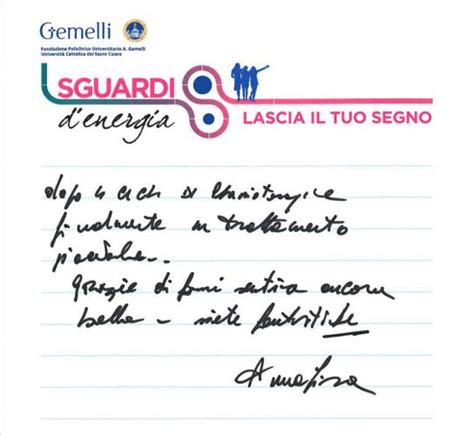 Gemelli
Fondazione Policlinico Universitario A. Gemelli
Università Cattolica del Sacro Cuore
SGUARDI
d'energia
LASCIA IL TUO SEGNO
dopo 4 cicli di chemioterapia
finalmente un trattamento
piacevole..
grazie di farmi sentire ancora
bella - siete fantastiche